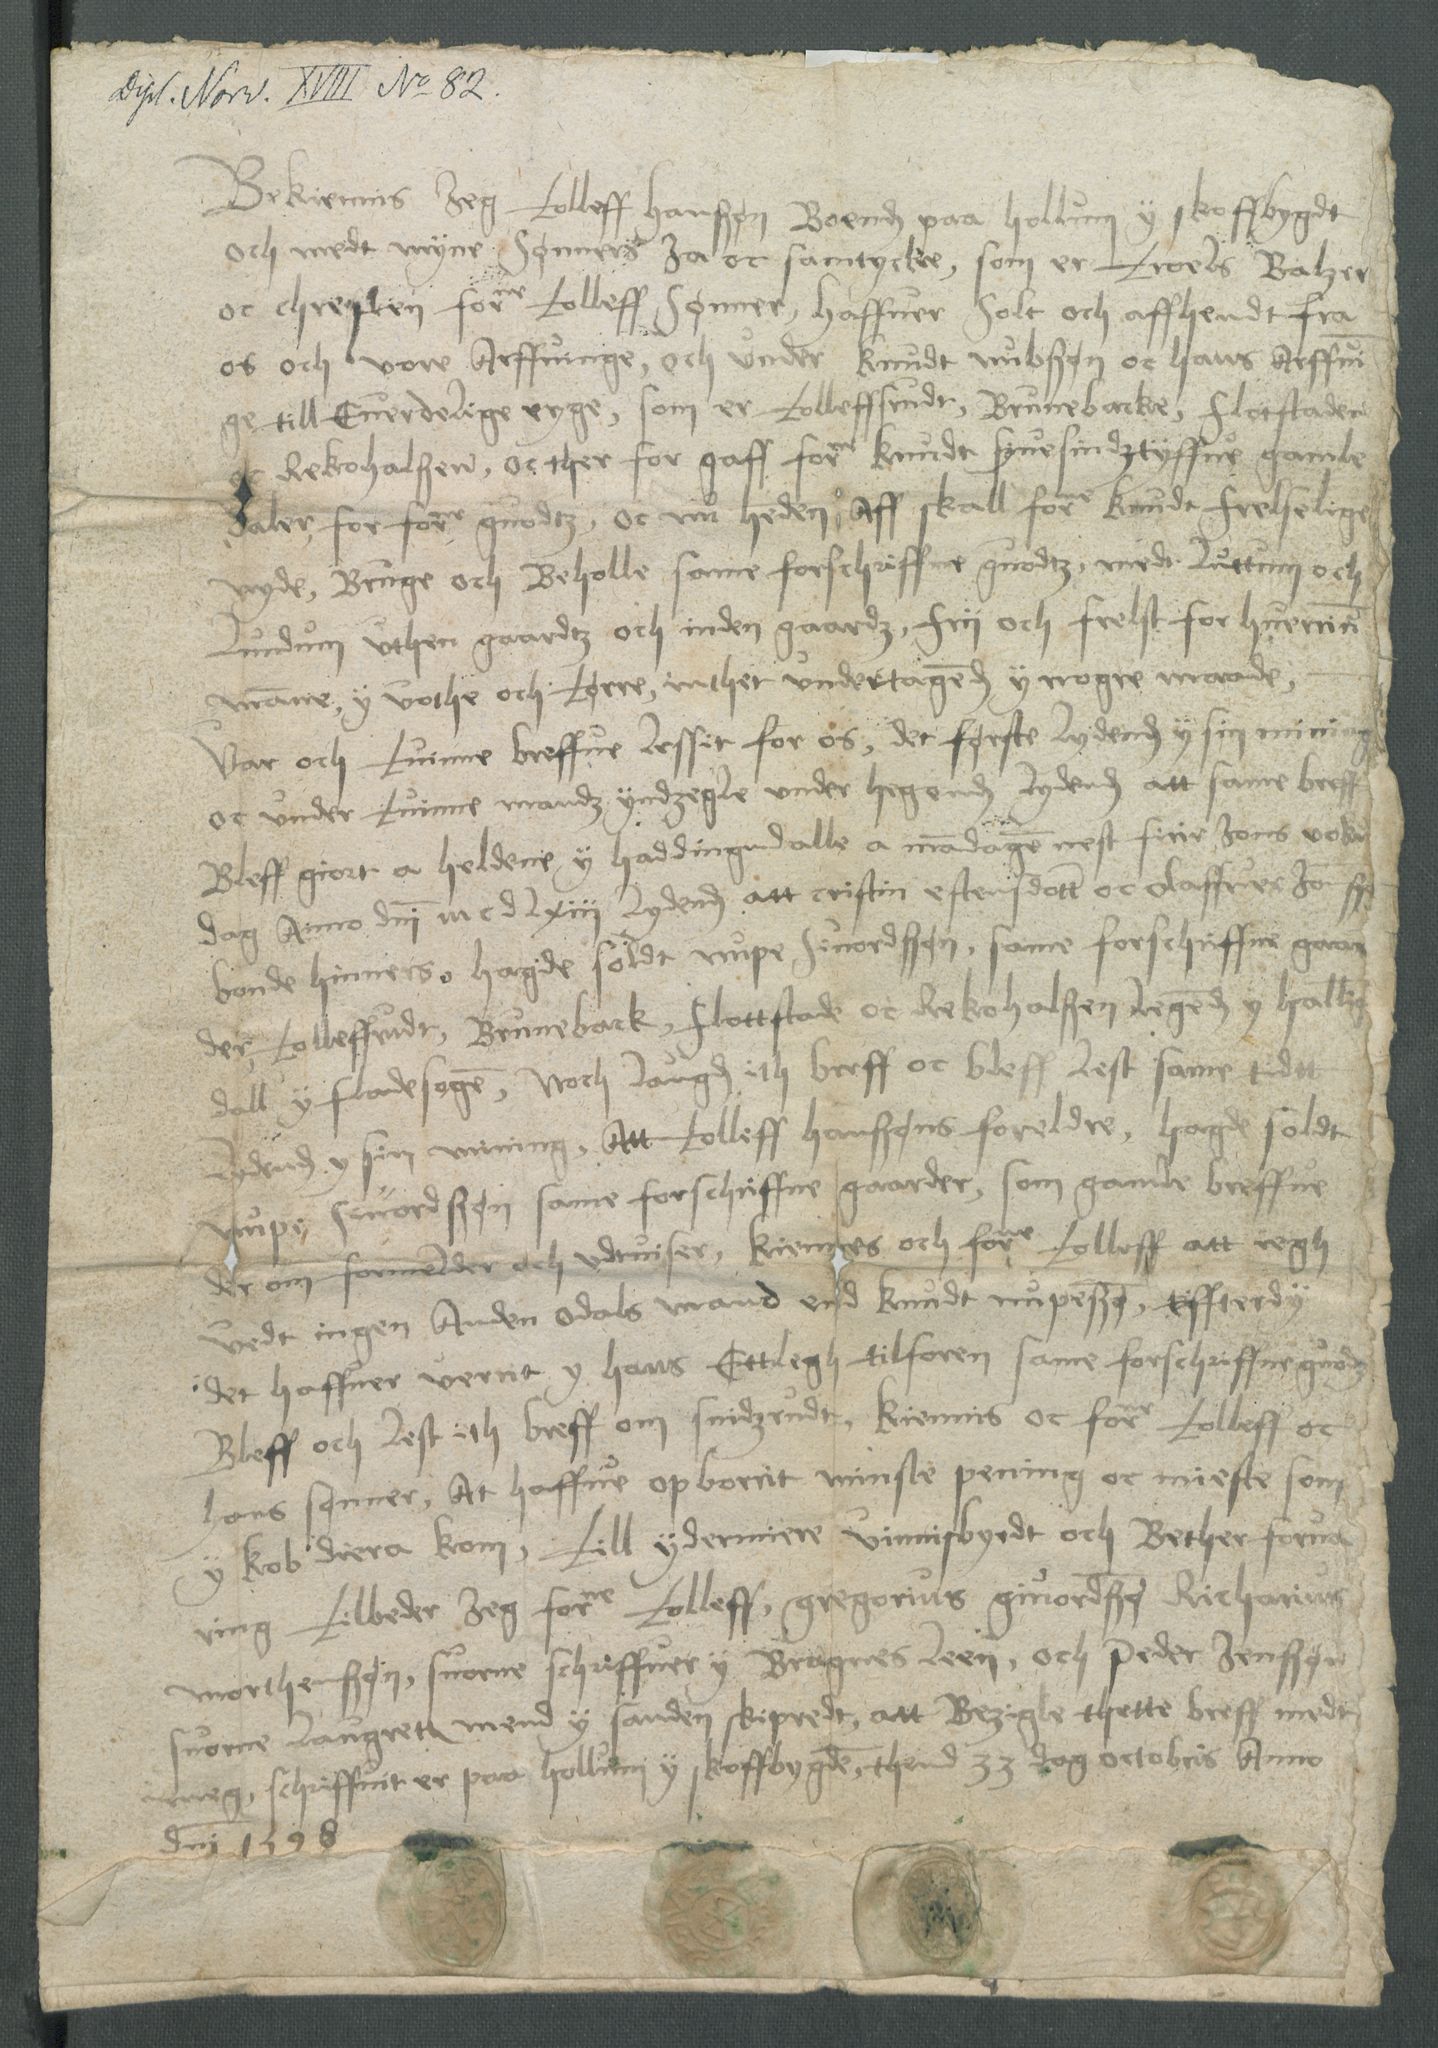 Dipl. Norv. XVIII No 82.
Bekiennis Jeg Tolleff hanßøn Boend paa hollum ÿ skoffbygdt
och medt mÿne sønners Ja oc samtÿckee, som er troels Balzer
oc chresten forne Tolleff sønner, haffuer solt och affhendt fra
os och vore Arffuinge, och vnder knudt nubsøn oc hans Arffui
ge till Euerdelige eyge, som er Tolleffsrudt, Brunebacke, flotstaden
oc Rekohalßen, oc ther for gaff forne knudt siuesindztÿffue gamle
daler for forne guodtz, oc nu heden Aff skall forne knudt frelselige
nyde, Bruge och Beholle same forschriffne guodtz, medt luttum och
lundum vthen gaardtz och inden gaardz, frii och frelst for huerrin
manne, ÿ vothe och tørre, inthet vndertagend ÿ nogre maade,
Var och tuinne breffue lessit for os, det første lydend ÿ sin mining
oc vnder tuinne mandz ÿndzegle vnder hegend lydend att same breff
Bleff giort a heldene ÿ haddingudalle a mandagen nest fire Jons voku
dag Anno dni mcdlxiii lydend att cristin estensdott oc olaffuer Jonsso
bonde hinners, hagde soldt nupe siuordssøn, same forschriffne gaar
der, Tolleffrudt, Bruneback, flottstade oc Rekohalßen legend y halling
dall ÿ flade sogen, Noch laugd ith breff oc bleff lest same tidtt
lydend y sin mining, Att Tolleff hanßøns foreldre, hagde soldt
nupe siuordssøn same forschriffne gaarder, som gamble breffue
der om formelder och vdtuiser, kiennes och forne Tolleff att iegh
vedt ingen Anden odals mand end knudt nupesso, effterdÿ
det haffuer verrit y hans Ettlegh tilforen same forschriffne guodz
Bleff och lest ith breff om snidzrudt, kiennis oc forne Tolleff oc
hans sønner, At haffue opborrit minste pening oc mieste som
ÿ kob diera kom, Till ÿdermiere vinnisbyrdt och Bether forua
ring Tilbeder Jeg forne Tolleff, gregorius giuordsso Richarius
morthenßøn, suorne schriffuer ÿ Bragnes leen, och peder Jenssøn
suorne laugrets mend y sanden skipredt, att Bezigle thette breff medt
meg, schriffuit er paa hollum ÿ skoffbygden, thend 33 dag octobris Anno
dni 1598